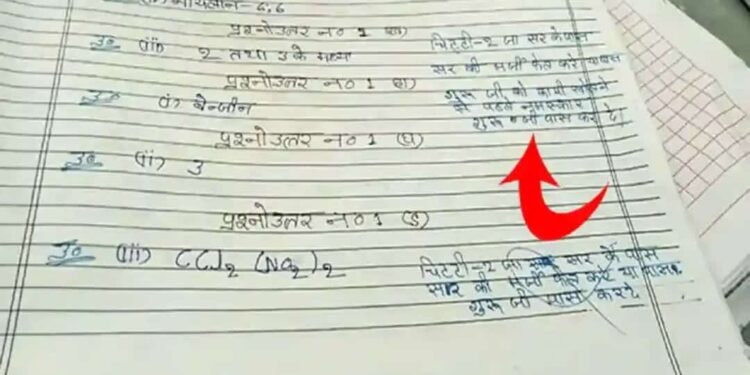 नायलॉन-6,6
प्रश्नोउत्तर न० 1 (ख)
उ० (iii) 2 तथा 3 के मध्य
प्रश्नोउत्तर न० 1 (ग)
उ० (i) बेन्जीन
प्रश्नोउत्तर न० 1 (घ)
उ० (ii) 3
प्रश्नोउत्तर न० 1 (ङ)
उ० (iii) CCl2 (NO2)2
चिटटी-2 जा सर के पास
सर की मर्जी फेल करे या पास
गुरू जी को कापी खोलने
से पहले नमस्कार
गुरू जी पास कर दे।
चिटटी-2 जा सर के पास
सर की मर्जी फेल करे या पास
गुरू जी पास कर दे